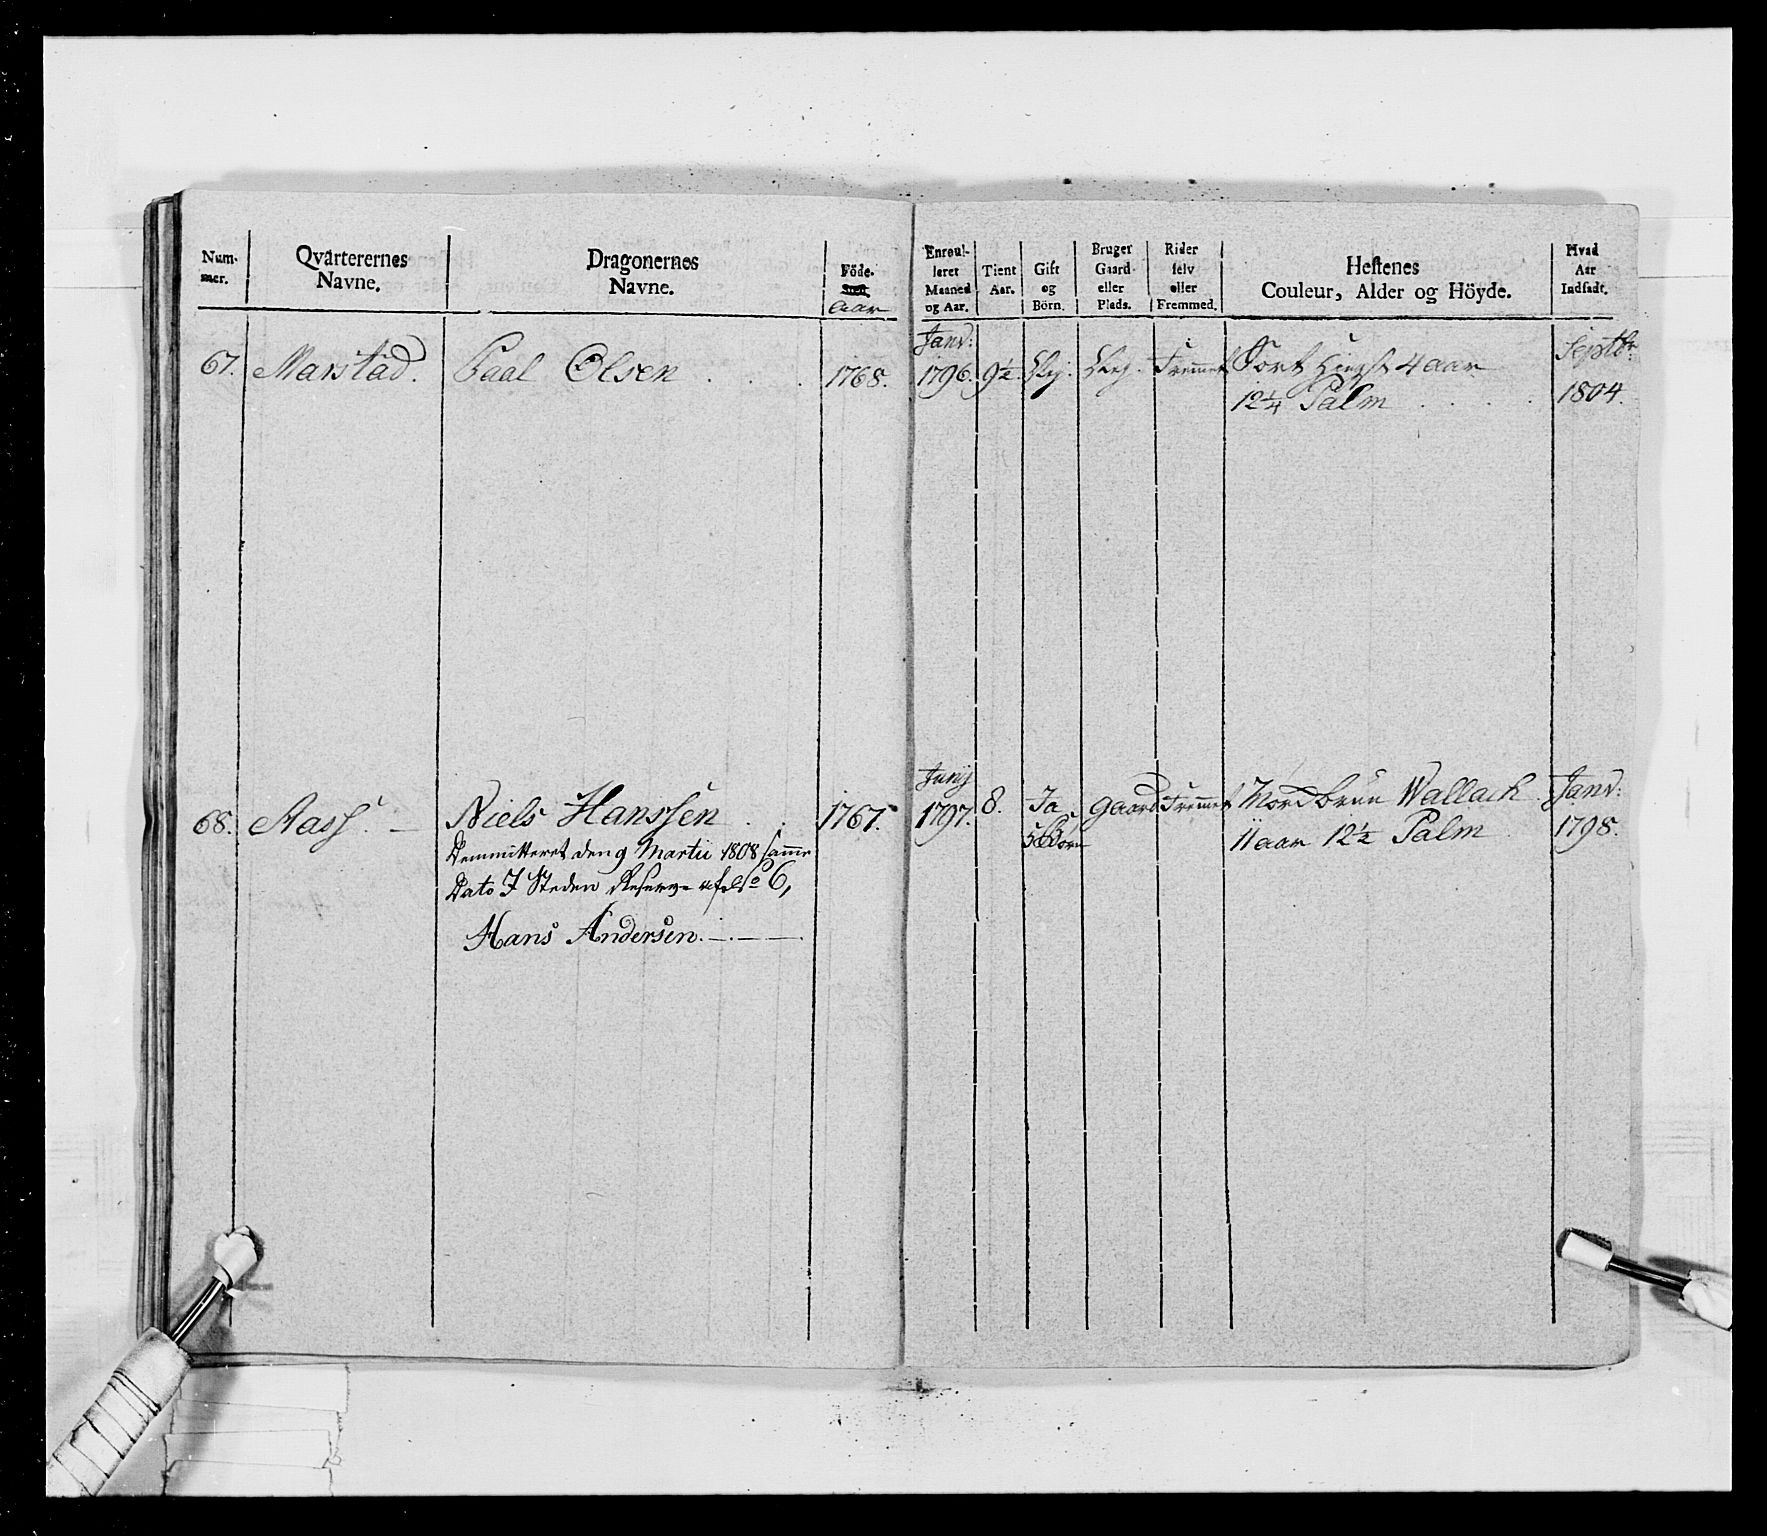 Num- mer.
Qvarterernes Navne.
Dragonernes Navne.
Föde- Sted. Aar
Enroul- leret Maaned og Aar.
Tient Aar.
Gift og Börn.
Bruger Gaard eller Plads.
Rider selv eller Fremmed.
Hestenes Couleur, Alder og Höyde.
Hvad Aar Indsadt.
67. Marstad. Paal Olsen . . . 1768. Janv: 1796. 9½. Nej. Nej. Fremmet Sort Hingst 4 aar Septbr
12¼ Palm . . . . 1804.
68. Aass. — Niels Hanssen . . 1767. Junij 1797. 8. Ja Gaard Fremmet Mordbrun Wallach Janv:
5 Börn 11 aar 12½ Palm 1798.
Demmitteret den 9 Martii 1808 samme
Dato I Steden Reserve No 6,
Hans Andersen. — . —